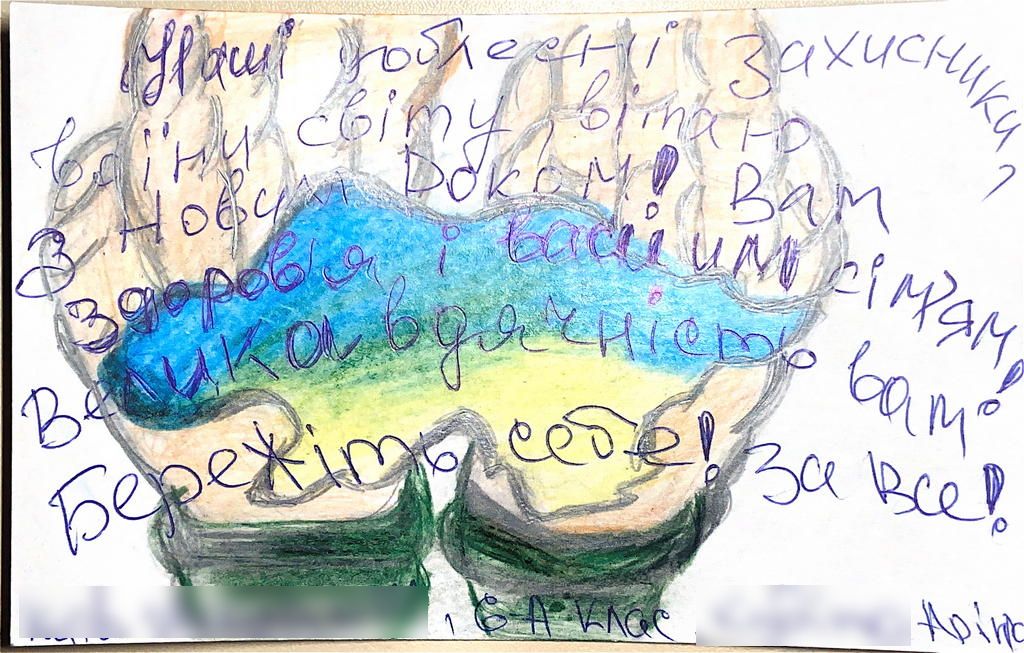 Наші доблесні Захисники,
воїни світу, вітаю
З Новим Роком! Вам
Здоров'я і вашим сім'ям!
Велика вдячність вам!
Бережіть себе! За все!
, 6-А клас Аріна